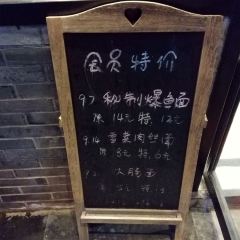 会员特价
9.7 秘制爆鱼面
原14元 特 12元
9.14 雪菜肉丝面
原 8元 特 6元
大肠面